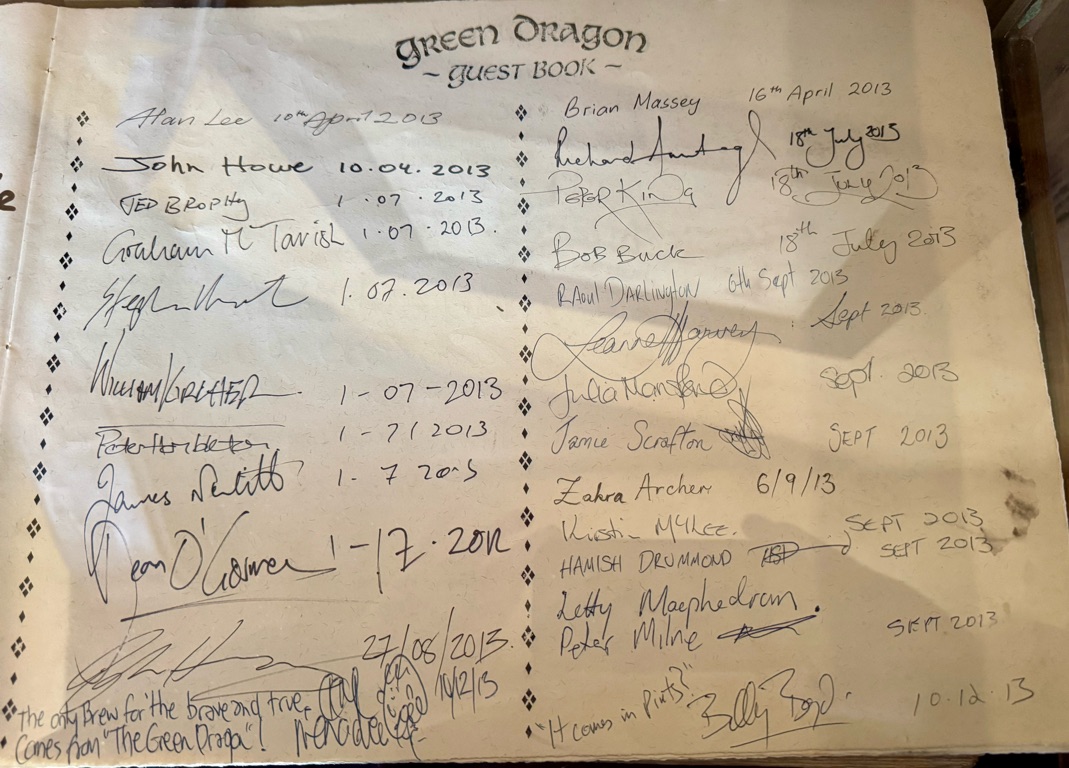 GREEN DRAGON
~ GUEST BOOK ~
Alan Lee 10th April 2013
John Howe 10.04.2013
JED BROPHY 1.07.2013
Graham McTavish 1.07.2013.
Stephen Hunter 1.07.2013
WILLIAM KIRCHER 1-07-2013
Peter Hambleton 1-7/2013
James Nesbitt 1-7 2013
Dean O'Gorman 1-17.2012
27/08/2013.
10/12/13
The only Brew for the brave and true,
Comes from "The Green Dragon"!
Brian Massey 16th April 2013
Richard Armitage 18th July 2013
PETER KING 18th July 2013
BOB BUCK 18th July 2013
RAOUL DARLINGTON 6th Sept 2013
Leanne Harvey Sept 2013.
Julia Mansford Sept. 2013
Jamie Scrafton SEPT 2013
Zahra Archer 6/9/13
Kirstin SEPT 2013
HAMISH DRUMMOND SEPT 2013
Letty Macphedran.
Peter Milne SEPT 2013
"It comes in pints?" Billy Boyd. 10.12.13